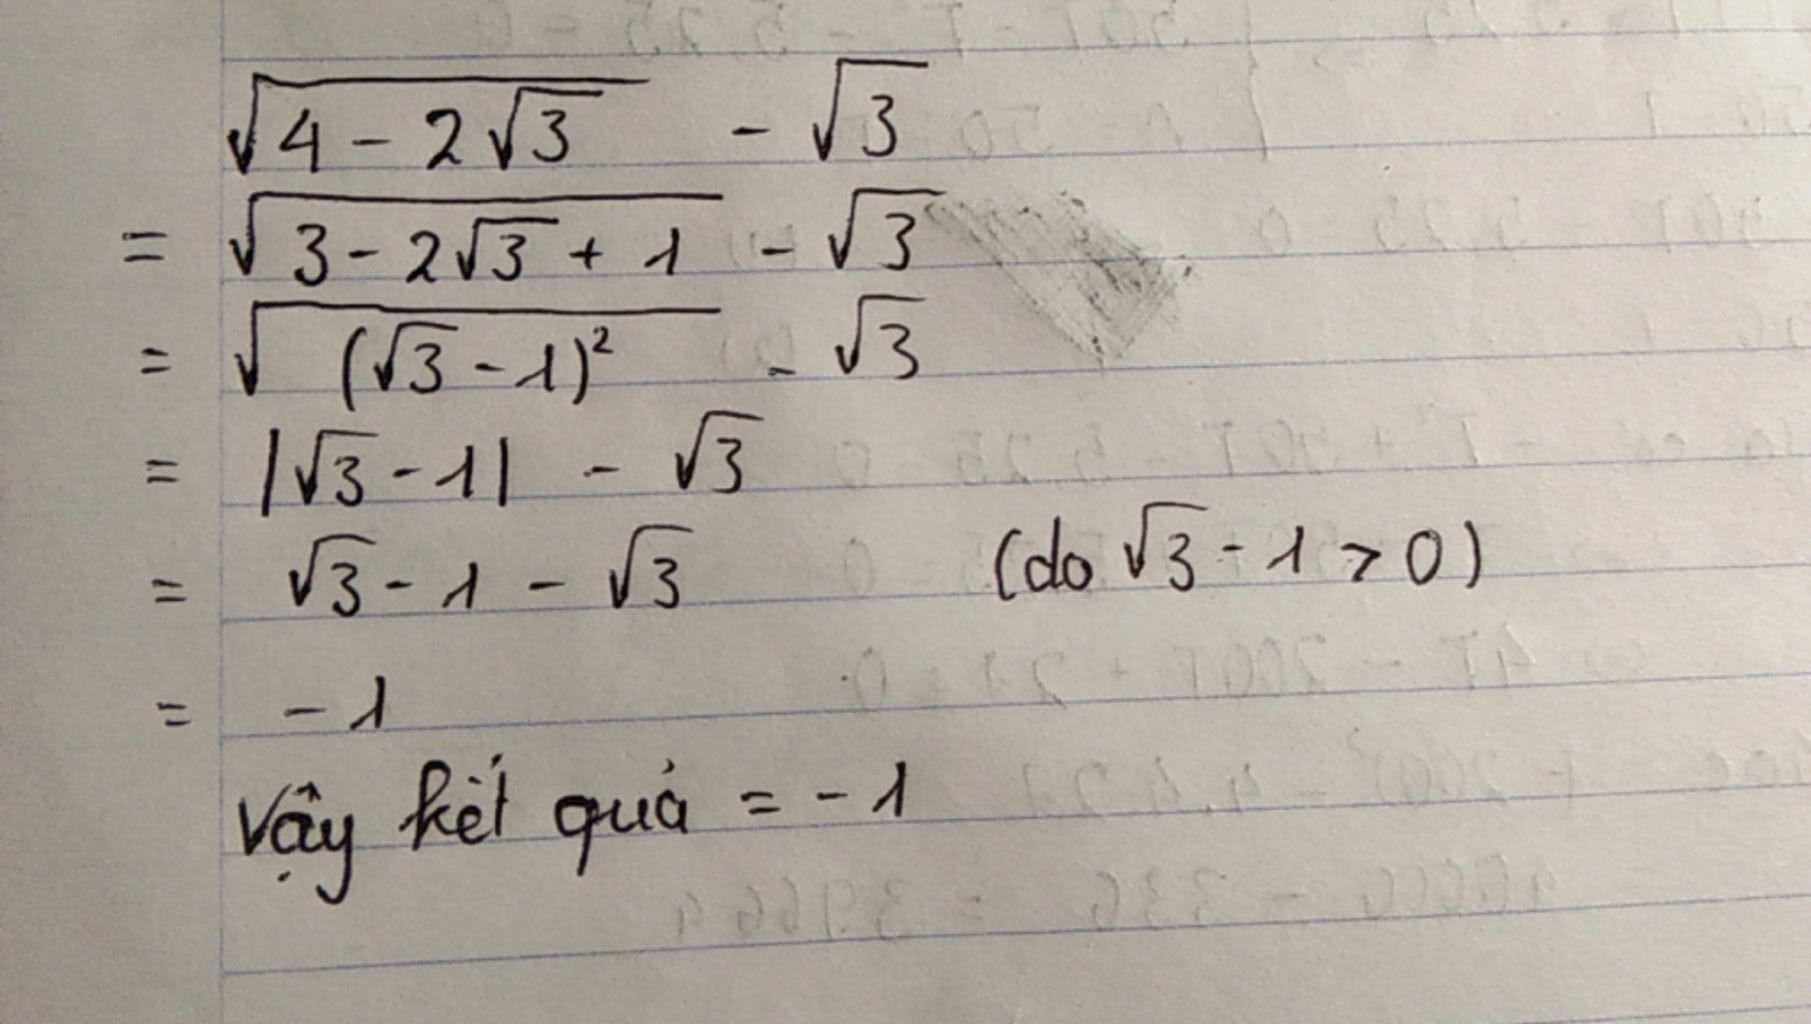 √(4 - 2√3) - √3
= √(3 - 2√3 + 1) - √3
= √((√3 - 1)²) - √3
= |√3 - 1| - √3
= √3 - 1 - √3 (do √3 - 1 > 0)
= - 1
Vậy kết quả = - 1